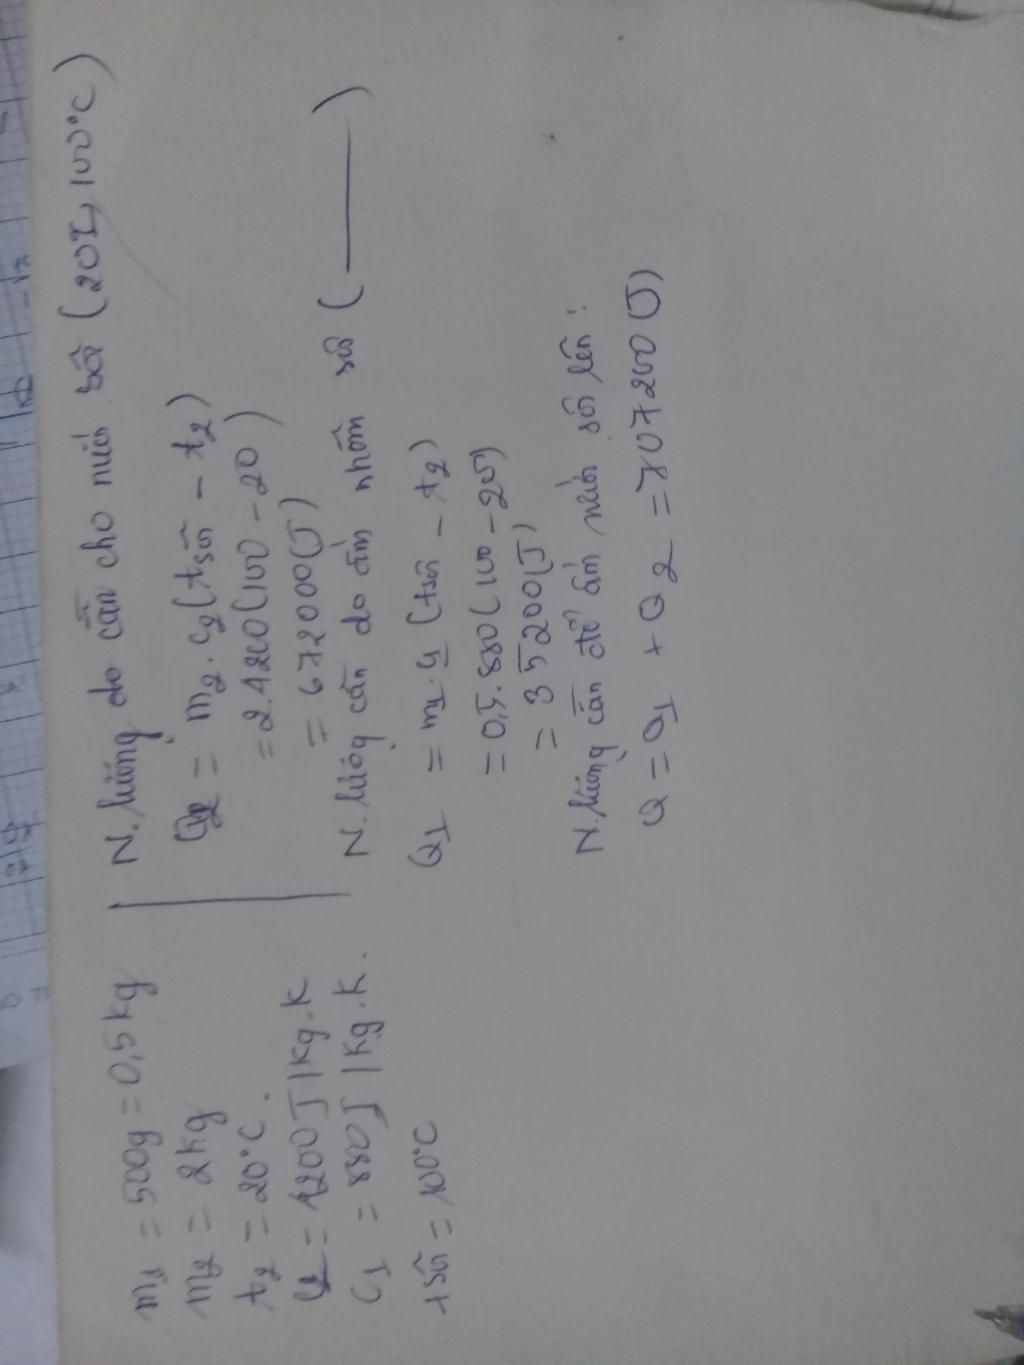 m₁ = 500g = 0,5kg
m₂ = 2kg
t₂ = 20°C.
C₂ = 4200J/kg.K
C₁ = 880J/kg.K.
tsôi = 100°C
N. lượng do cần cho nước sôi (20°C, 100°C)
Q₂ = m₂.c₂(tsôi - t₂)
= 2.4200(100 - 20)
= 672000(J)
N. lượng cần do ấm nhôm sôi ( )
Q₁ = m₁.c₁ (tsôi - t₂)
= 0,5.880(100 - 20)
= 35200(J)
N. lượng cần để ấm nước sôi lên:
Q = Q₁ + Q₂ = 707200(J)